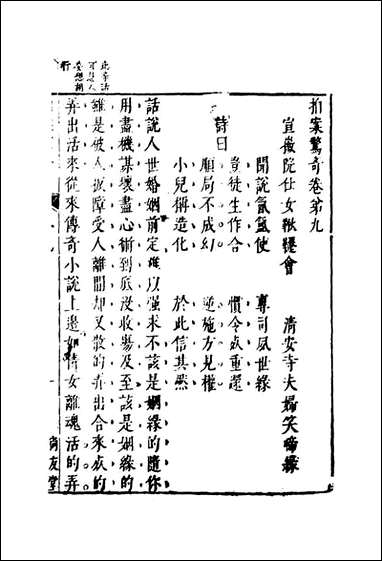 此等話
可息人
妄想
行
拍案驚奇卷第九
宣徽院仕女鞦韆會 清安寺夫婦笑啼緣
詩曰
聞說氤氳使 專司夙世緣
豈徒生作合 慣令死重還
順局不成幻 逆施方見權
小兒稱造化 於此信其然
話說人世婚姻前定難以強求不該是姻緣的隨你
用盡機謀壞盡心術到底沒收場及至該是姻緣的
雖是被人扳障受人離間却又散的弄出合來死的
弄出活來從來傳奇小說上邊如倩女離魂活的弄
尚友堂